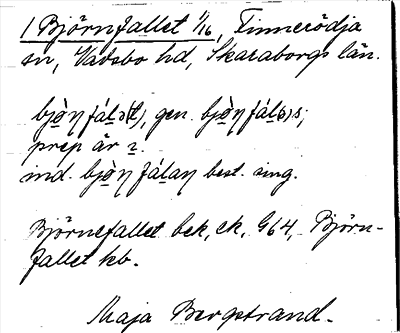 1 Björnfallet 1/16, Finnerödja
sn, Vadsbo hd, Skaraborgs län.
bjò̱ŋfál̲ə(t), gen. bjò̱ŋfál̲(ə)s;
prep är ɩ.
ind. bjò̱ŋ fál̲aŋ best. sing.
Björnefallet bek, ek, G64, Björn-
fallet kb.
Maja Bergstrand.